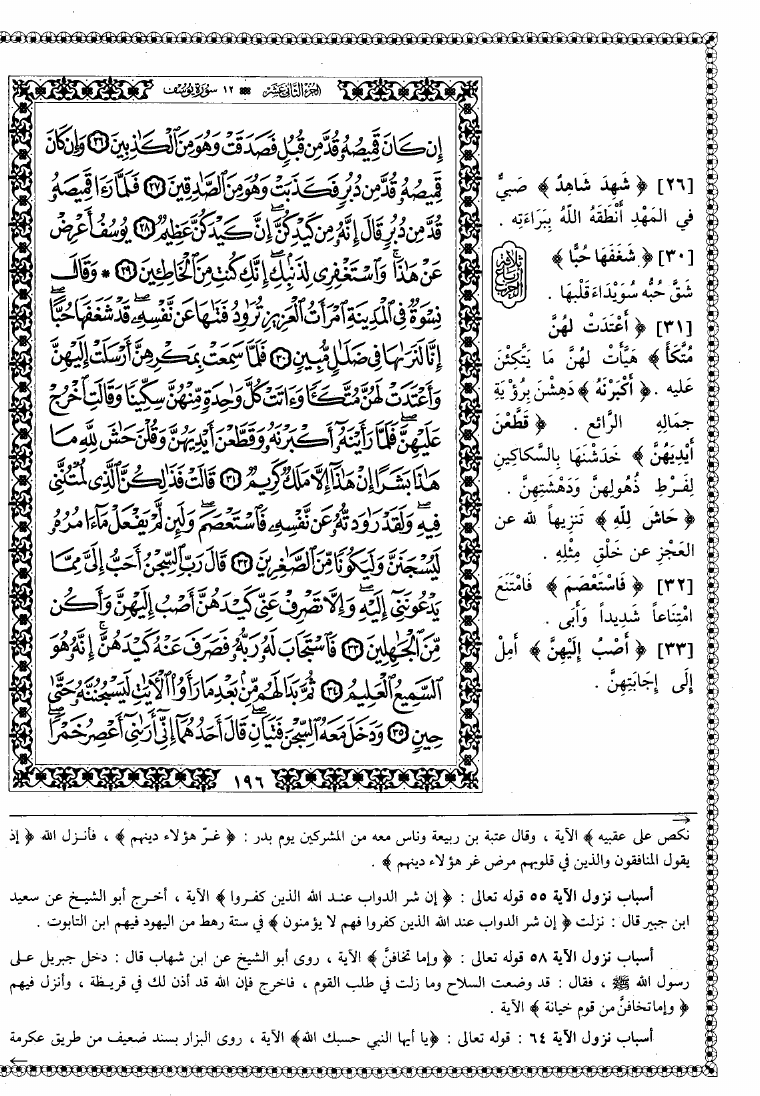 الجزء الثاني عشر ١٢ سورة يوسف
إِن كَانَ قَمِيصُهُۥ قُدَّ مِن قُبُلٍ فَصَدَقَتْ وَهُوَ مِنَ ٱلْكَٰذِبِينَ ٢٦ وَإِن كَانَ
قَمِيصُهُۥ قُدَّ مِن دُبُرٍ فَكَذَبَتْ وَهُوَ مِنَ ٱلصَّٰدِقِينَ ٢٧ فَلَمَّا رَءَا قَمِيصَهُۥ
قُدَّ مِن دُبُرٍ قَالَ إِنَّهُۥ مِن كَيْدِكُنَّ إِنَّ كَيْدَكُنَّ عَظِيمٌ ٢٨ يُوسُفُ أَعْرِضْ
عَنْ هَٰذَا وَٱسْتَغْفِرِى لِذَنۢبِكِ إِنَّكِ كُنتِ مِنَ ٱلْخَاطِـِٔينَ ٢٩ * وَقَالَ
نِسْوَةٌ فِى ٱلْمَدِينَةِ ٱمْرَأَتُ ٱلْعَزِيزِ تُرَٰوِدُ فَتَىٰهَا عَن نَّفْسِهِۦ قَدْ شَغَفَهَا حُبًّا
إِنَّا لَنَرَىٰهَا فِى ضَلَٰلٍ مُّبِينٍ ٣٠ فَلَمَّا سَمِعَتْ بِمَكْرِهِنَّ أَرْسَلَتْ إِلَيْهِنَّ
وَأَعْتَدَتْ لَهُنَّ مُتَّكَـًٔا وَءَاتَتْ كُلَّ وَٰحِدَةٍ مِّنْهُنَّ سِكِّينًا وَقَالَتِ ٱخْرُجْ
عَلَيْهِنَّ فَلَمَّا رَأَيْنَهُۥٓ أَكْبَرْنَهُۥ وَقَطَّعْنَ أَيْدِيَهُنَّ وَقُلْنَ حَٰشَ لِلَّهِ مَا
هَٰذَا بَشَرًا إِنْ هَٰذَآ إِلَّا مَلَكٌ كَرِيمٌ ٣١ قَالَتْ فَذَٰلِكُنَّ ٱلَّذِى لُمْتُنَّنِى
فِيهِ وَلَقَدْ رَٰوَدتُّهُۥ عَن نَّفْسِهِۦ فَٱسْتَعْصَمَ وَلَئِن لَّمْ يَفْعَلْ مَآ ءَامُرُهُۥ
لَيُسْجَنَنَّ وَلَيَكُونًا مِّنَ ٱلصَّٰغِرِينَ ٣٢ قَالَ رَبِّ ٱلسِّجْنُ أَحَبُّ إِلَىَّ مِمَّا
يَدْعُونَنِىٓ إِلَيْهِ وَإِلَّا تَصْرِفْ عَنِّى كَيْدَهُنَّ أَصْبُ إِلَيْهِنَّ وَأَكُن
مِّنَ ٱلْجَٰهِلِينَ ٣٣ فَٱسْتَجَابَ لَهُۥ رَبُّهُۥ فَصَرَفَ عَنْهُ كَيْدَهُنَّ إِنَّهُۥ هُوَ
ٱلسَّمِيعُ ٱلْعَلِيمُ ٣٤ ثُمَّ بَدَا لَهُم مِّنۢ بَعْدِ مَا رَأَوُا۟ ٱلْءَايَٰتِ لَيَسْجُنُنَّهُۥ حَتَّىٰ
حِينٍ ٣٥ وَدَخَلَ مَعَهُ ٱلسِّجْنَ فَتَيَانِ قَالَ أَحَدُهُمَآ إِنِّىٓ أَرَىٰنِىٓ أَعْصِرُ خَمْرًا
١٩٦
[٢٦] ﴿ شَهِدَ شَاهِدٌ ﴾ صَبيٌّ
في المَهْدِ أَنْطَقَهُ اللَّهُ بِبَرَاءَتِه .
[٣٠] ﴿ شَغَفَهَا حُبًّا ﴾
شَقَّ حُبُّه سُوَيْدَاءَ قَلْبِها .
ثلاثة أرباع الحزب
[٣١] ﴿ أَعْتَدَتْ لَهُنَّ
مُتَّكَأً ﴾ هَيَّأَتْ لهُنَّ مَا يَتَّكِئْنَ
عليه . ﴿ أَكْبَرْنَهُ ﴾ دَهِشْنَ بِرُؤْيَةِ
جمالِهِ الرَّائعِ . ﴿ قَطَّعْنَ
أَيْدِيَهُنَّ ﴾ خَدَشْنَهَا بِالسَّكاكينِ
لِفَرْطِ ذُهُولِهنَّ وَدَهْشَتِهنَّ .
﴿ حَاشَ لِلَّهِ ﴾ تَنزِيهاً لله عن
العَجْزِ عن خَلْقِ مِثْلِهِ .
[٣٢] ﴿ فَاسْتَعْصَمَ ﴾ فَامْتَنَعَ
امْتِناعاً شَدِيداً وَأَبى .
[٣٣] ﴿ أَصْبُ إِلَيْهِنَّ ﴾ أَمِلْ
إِلَى إِجَابَتِهِنَّ .
نكص على عقبيه ﴾ الآية ، وقال عتبة بن ربيعة وناس معه من المشركين يوم بدر : ﴿ غرّ هؤلاء دينهم ﴾ ، فأنـزل الله ﴿ إذ
يقول المنافقون والذين في قلوبهم مرض غر هؤلاء دينهم ﴾ .
أسباب نزول الآية ٥٥ قوله تعالى : ﴿ إن شر الدواب عند الله الذين كفروا ﴾ الآية ، أخـرج أبو الشيخ عن سعيد
ابن جبير قال : نزلت ﴿ إن شر الدواب عند الله الذين كفروا فهم لا يؤمنون ﴾ في ستة رهط من اليهود فيهم ابن التابوت .
أسباب نزول الآية ٥٨ قوله تعالى : ﴿ وإما تخافنَّ ﴾ الآية ، روى أبو الشيخ عن ابن شهاب قال : دخل جبريل على
رسول الله ﷺ ، فقال : قد وضعت السلاح وما زلت في طلب القوم ، فاخرج فإن الله قد أذن لك في قريظة ، وأنزل فيهم
﴿ وإما تخافنَّ من قوم خيانة ﴾ الآية .
أسباب نزول الآية ٦٤ : قوله تعالى : ﴿يا أيها النبي حسبك الله﴾ الآية ، روى البزار بسند ضعيف من طريق عكرمة